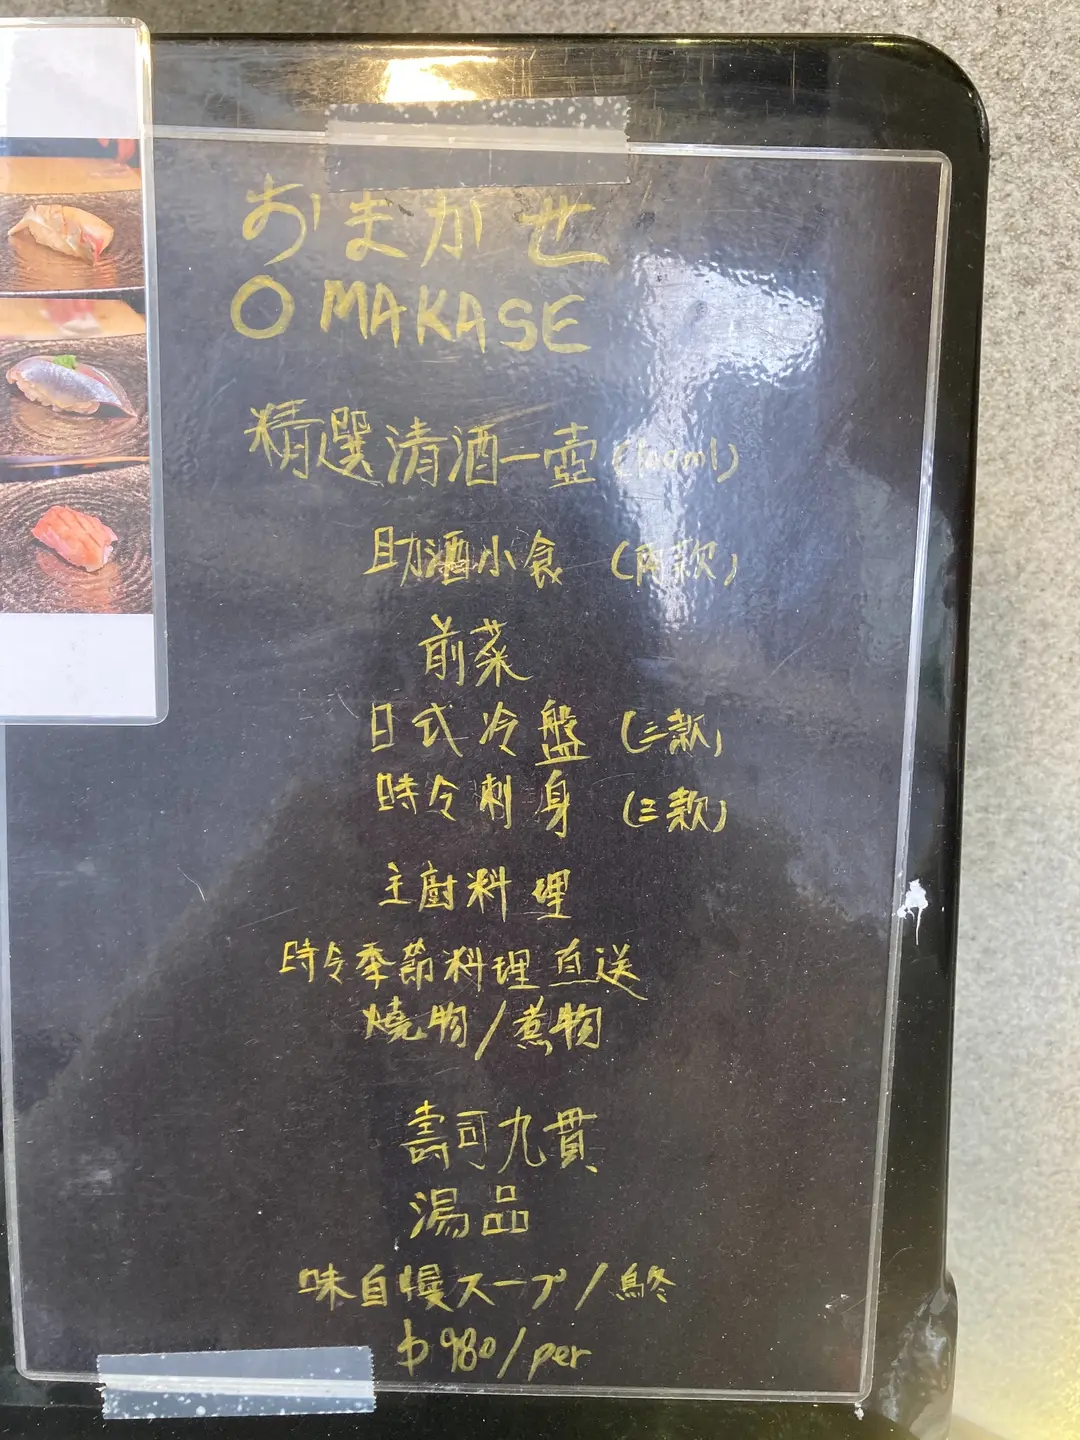 おまかせ
OMAKASE
精選清酒一壺 (100ml)
助酒小食 (兩款)
前菜
日式冷盤 (三款)
時令刺身 (三款)
主廚料理
時令季節料理直送
燒物/煮物
壽司九貫
湯品
味自慢スープ/
$980/per